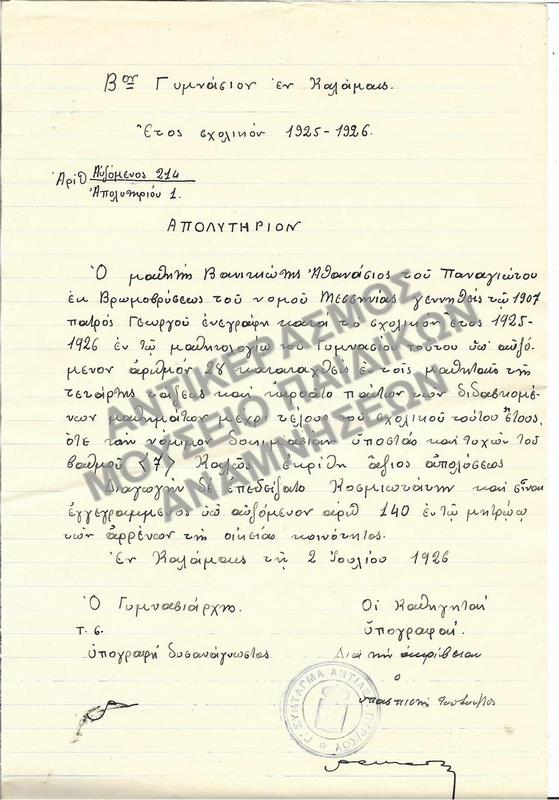 Βον Γυμνάσιον ἐν Καλάμαις.
Ἔτος σχολικόν 1925-1926.
Ἀριθ Αὐξόμενος 214
Ἀπολυτηρίου 1.
ΑΠΟΛΥΤΗΡΙΟΝ
Ὁ μαθητής Βανικιώτης Ἀθανάσιος τοῦ Παναγιώτου
ἐκ Βρωμοβρύσεως τοῦ νομοῦ Μεσσηνίας γεννηθείς τῷ 1907
πατρός Γεωργοῦ ἐνεγράφη κατά τό σχολικόν ἔτος 1925-
1926 ἐν τῷ μαθητολογίῳ τοῦ Γυμνασίου τούτου ὑπ' αὐξό-
μενον ἀριθμόν 28 καταταχθείς ἐν τοῖς μαθηταῖς τῆς
τετάρτης τάξεως καί ἠκροᾶτο πάντων των διδασκομέ-
νων μαθημάτων μέχρι τέλους τοῦ σχολικοῦ τούτου ἔτους,
ὅτε τήν νόμιμον δοκιμασίαν ὑποστάς καί τυχών τοῦ
βαθμοῦ (7) Καλῶς ἐκρίθη ἄξιος ἀπολύσεως
Διαγωγήν δέ ἐπεδείξατο Κοσμιωτάτην καί εἶναι
ἐγγεγραμμένος ὑπ' αὐξόμενον ἀριθ 140 ἐν τῷ μητρώῳ
των ἀρρένων τῆς οἰκείας κοινότητος.
Ἐν Καλάμαις τῇ 2 Ἰουλίου 1926
Ὁ Γυμνασιάρχης.
Οἱ Καθηγηταί
Τ. Σ.
ὑπογραφαί.
ὑπογραφή δυσανάγνωστος
Διά τήν ἀκρίβειαν
ὁ
ΑΝΤΙΚΕΡΑΣΜΟΣ
ΜΟΥΣΕΙΟ ΠΑΙΔΙΚΩΝ
ΑΝΑΜΝΗΣΕΩΝ
ΣΥΝΤΑΓΜΑ ΑΝΤΙΑΕΡ. ΠΥΡΚΟΥ